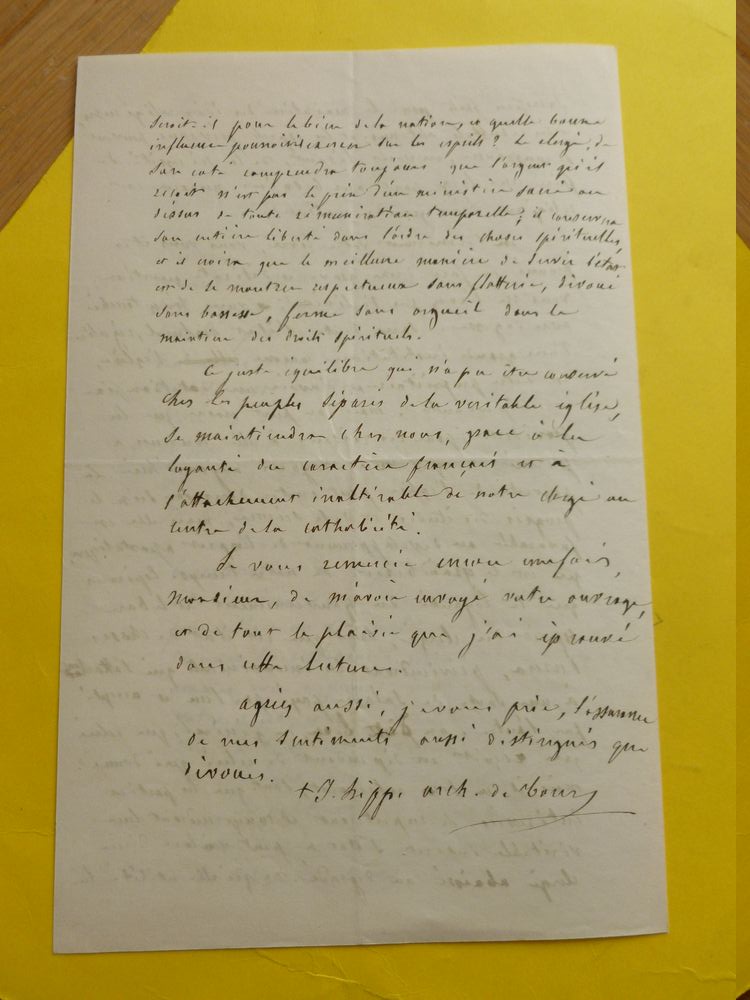 seroit-il pour le bien de la nation, et quelle bonne
influence pourroit-il exercer sur les esprits? Le clergé, de
son coté comprendra toujours que l'argent qu'il
reçoit n'est pas le prix d'un ministère sacré au
dessus de toute rémunération temporelle; il conservera
son entière liberté dans l'ordre des choses spirituelles,
et il croira que la meilleure manière de servir l'état
est de se montrer respectueux sans flatterie, dévoué
sans bassesse, ferme sans orgueil dans le
maintien des droits spirituels.
Ce juste équilibre qui n'a pu être conservé
chez les peuples séparés de la véritable église,
se maintiendra chez nous, grace à la
loyauté du caractère français et à
l'attachement inaltérable de notre clergé au
centre de la catholicité.
Je vous remercie encore une fois,
Monsieur, de m'avoir envoyé votre ouvrage,
et de tout le plaisir que j'ai éprouvé
dans cette lecture.
agréez aussi, je vous prie, l'assurance
de mes sentiments aussi distingués que
dévoués.
+ J. hipp. arch. de Tours